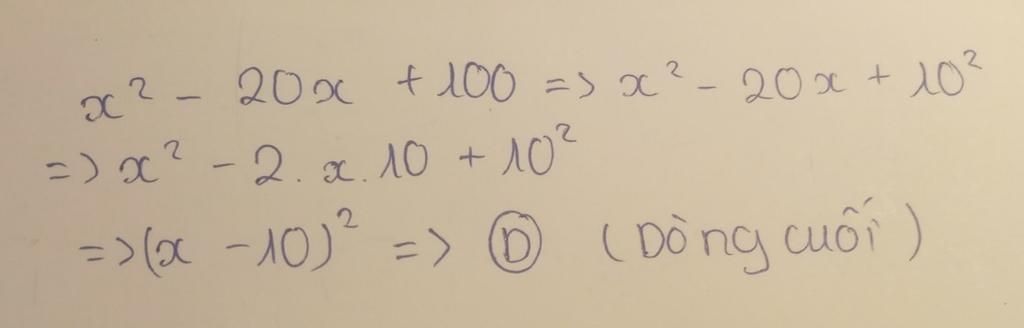 x² - 20x + 100 => x² - 20x + 10²
=> x² - 2. x. 10 + 10²
=> (x - 10)² => Ⓓ (Dòng cuối)